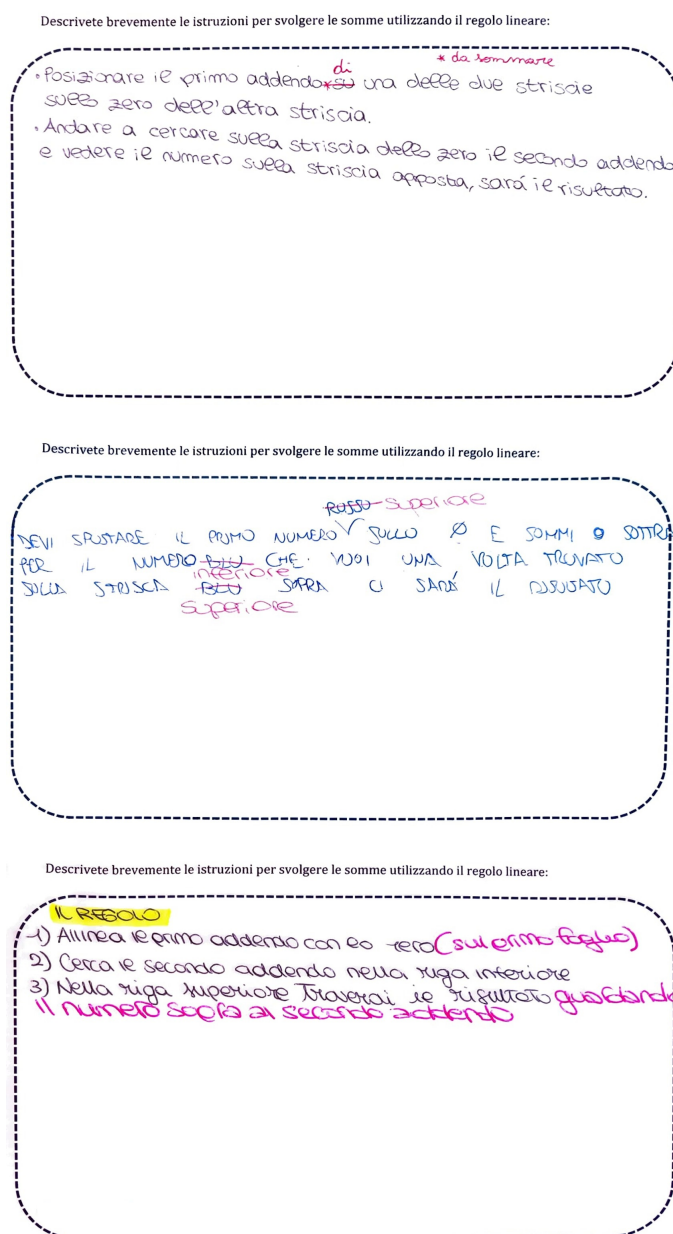 Descrivete brevemente le istruzioni per svolgere le somme utilizzando il regolo lineare:
* da sommare
di
• Posizionare il primo addendo * su una delle due striscie
sullo zero dell'altra striscia.
• Andare a cercare sulla striscia dello zero il secondo addendo
e vedere il numero sulla striscia apposta, sará il risultato.
Descrivete brevemente le istruzioni per svolgere le somme utilizzando il regolo lineare:
ROSSO superiore
DEVI SPOSTARE IL PRIMO NUMERO V SULLO Ø E SOMMI O SOTTR
PER IL NUMERO BLU CHE VUOI UNA VOLTA TROVATO
inferiore
SULLA STRISCA BLU SOPRA CI SARÁ IL RISULTATO
superiore
Descrivete brevemente le istruzioni per svolgere le somme utilizzando il regolo lineare:
IL REGOLO
1) Allinea il primo addendo con lo zero (sul primo foglio)
2) Cerca il secondo addendo nella riga inferiore
3) Nella riga superiore troverai il risultato guardando
il numero sopra al secondo addendo